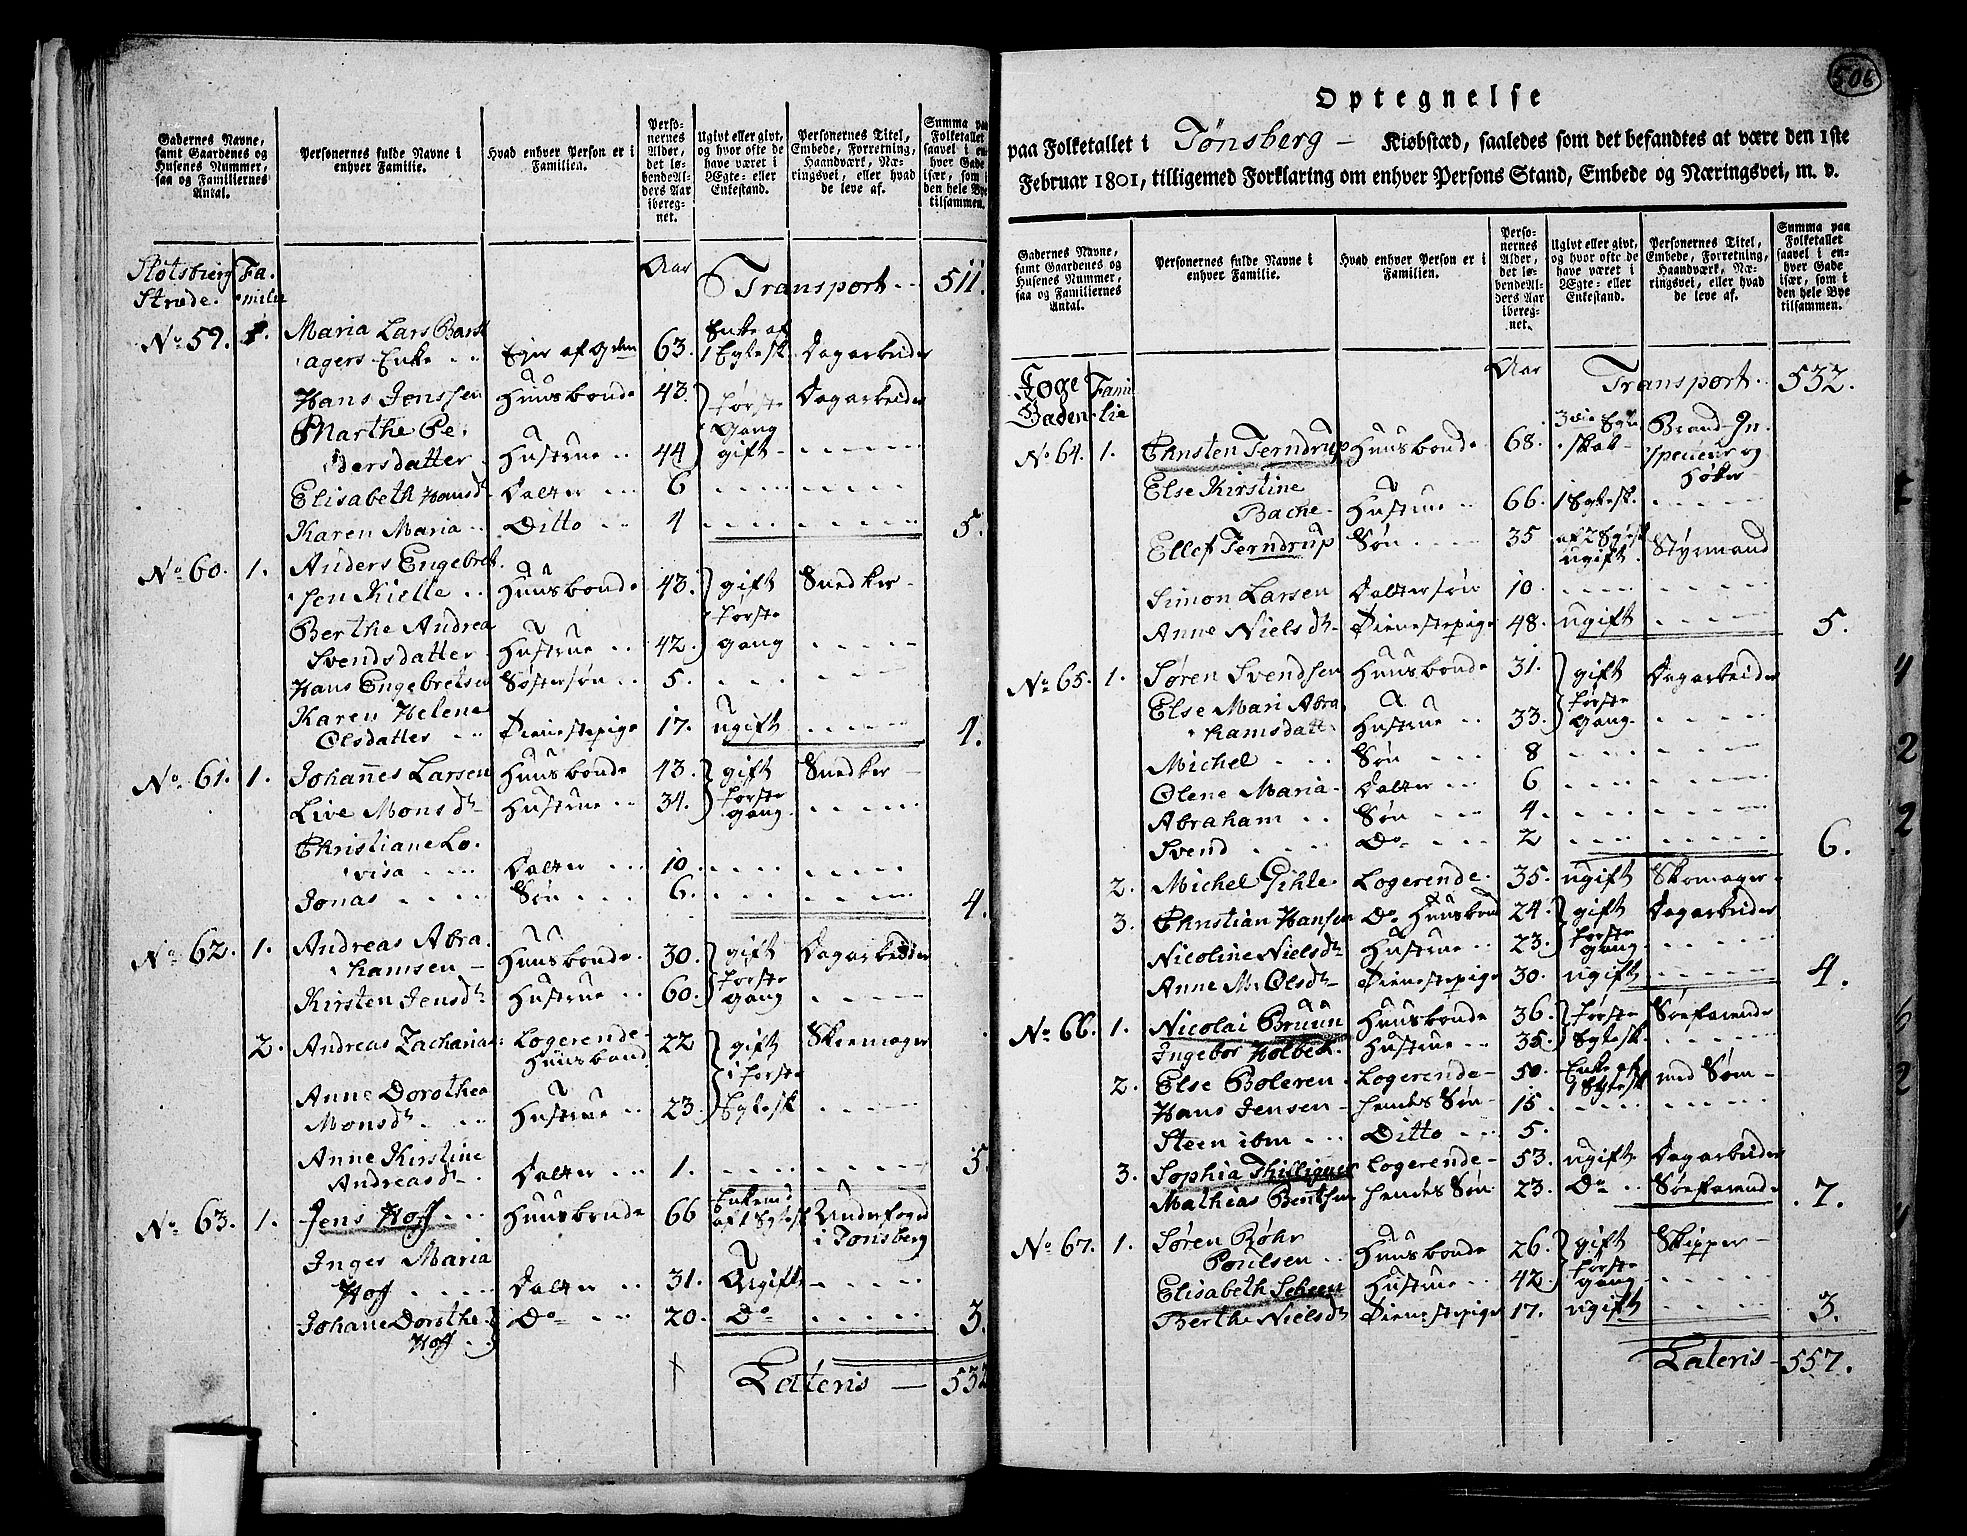 Gadernes Navne, samt Gaardenes og Husenes Nummer, saa og Familiernes Antal.
Personernes fulde Navne i enhver Familie.
Hvad enhver Person er i Familien.
Personernes Alder, det løbende Alders Aar iberegnet.
Ugivt eller givt, og hvor ofte de have været i Ægte- eller Enkestand.
Personernes Titel, Embede, Forretning, Haandværk, Næringsvei, eller hvad de leve af.
Summa paa Folketallet saavel i enhver Gade især, som i den hele Bye tilsammen.
Slotsbierg Fa. Aar Transport 511.
Stræde. milie
No 59. Maria Lars Enke af
agers Enke Eyer af 63. 1 Egtesk. Dagarbeider
Hans Jenssen Huusbonde 43. første Dagarbeider
Marthe Pe- Gang
dersdatter Hustrue 44 gift
Elisabeth Hansdr Datter 6
Karen Maria Ditto 4 5.
No 60. 1. Anders Engebret
sen Kielle Huusbonde 43. gift Snedker
Berthe Andrea første
Svendsdatter Hustrue 42. gang
Hans Engebretsen Søstersøn 5.
Karen Helene
Olsdatter Tienestepige 17. ugift 4.
No 61. 1. Johannes Larsen Huusbonde 43. gift Snedker
Live Monsdr Hustrue 34. første gang
Christiane Lo-
visa Datter 10.
Jonas Søn 6. 4.
No 62. 1. Andreas Abra-
hamsen Huusbonde 30. gift Dagarbeider
Kirsten Jensdr Hustrue 60. første gang
2. Andreas Zacharia Logerende Huusbond 22 gift Skoemager
Anne Dorothea i første
Monsdr Hustrue 23. Egtesk
Anne Kirstine
Andreasdr Datter 1. 5
No 63. 1. Jens Hoff Huusbonde 66 Enkemd af 1 Egtesk Underfoged i Tonsberg
Inger Maria
Hoff Datter 31. Ugift
Johane Dorothe Do 20. Do 3.
Hoff
Lateris 532
506
Optegnelse
paa Folketallet i Tønsberg Kiøbstæd, saaledes som det befandtes at være den 1ste
Februar 1801, tilligemed Forklaring om enhver Persons Stand, Embede og Næringsvei, m. v.
Gadernes Navne, samt Gaardenes og Husenes Nummer, saa og Familiernes Antal.
Personernes fulde Navne i enhver Familie.
Hvad enhver Person er i Familien.
Personernes Alder, det løbende Alders Aar iberegnet.
Ugivt eller givt, og hvor ofte de have været i Ægte- eller Enkestand.
Personernes Titel, Embede, Forretning, Haandværk, Næringsvei, eller hvad de leve af.
Summa paa Folketallet saavel i enhver Gade især, som i den hele Bye tilsammen.
Aar Transport 532.
Foge Fami
Gaden lie
No 64. 1. Christen Terndrup Huusbonde 68. 3die Egte skab Brand-In
specteur og
Høker
Else Kirstine
Bache Hustrue 66. 1 Egtesk.
Ellef Terndrup Søn 35 af 2 Egtesk ugift Styrmand
Simon Larsen Dattersøn 10.
Anne Nielsdr Tienestepige 48. ugift 5.
No 65. 1. Søren Svendsen Huusbonde 31. gift Dagarbeider
Else Mari Abra første
hamsdatt Hustrue 33. Gang
Michel Søn 8
Olene Maria Datter 6
Abraham Søn 4.
Svend Do 2 6.
2. Michel Gihle Logerende 35. ugift Skomager
3. Christian Hansen Do Huusbond 24. gift Dagarbeider
Nicoline Nielsdr Hustrue 23. første gang
Anne M. Olsdr Tienestepige 30. ugift 4.
No 66. 1. Nicolai Bruun Huusbonde 36. første Søefarende
Ingebor Holbech Hustrue 35. Egtesk.
2. Else Boleren Logerende 50. Enke af 1 Egtesk med Søm
Hans Jensen hendes Søn 15.
Steen ibm Ditto 5.
3. Sophia Logerende 53. ugift Dagarbeider
Mathias Bentsen hendes Søn 23. Do Søefarende 7.
No 67. 1. Søren Røhr
Poulsen Huusbonde 26. gift Skipper
Elisabeth Scheen Hustrue 42. første gang
Berthe Nielsdr Tienestepige 17. ugift 3.
Lateris 557.